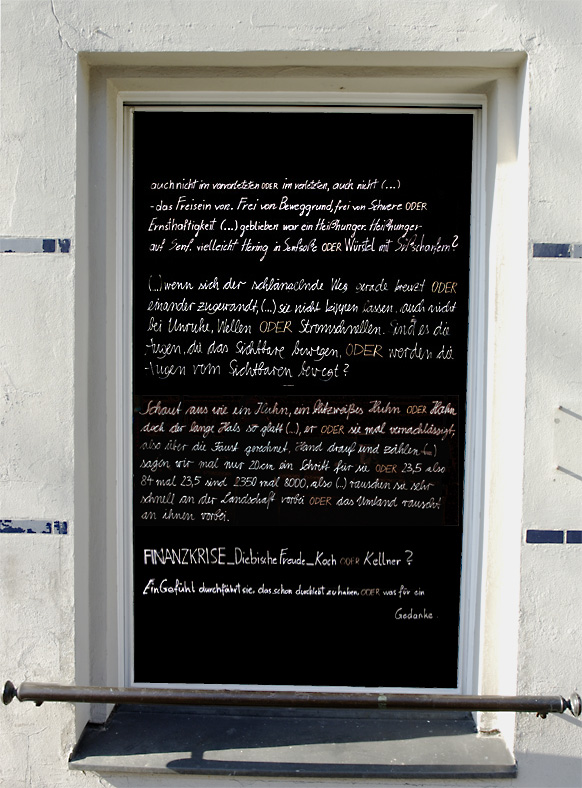 auch nicht im vorvorletzten ODER im vorletzten, auch nicht (...)
- das Freisein von. Frei von Beweggrund, frei von Schwere ODER
Ernsthaftigkeit (...) geblieben war ein Heißhunger. Heißhunger
auf Senf. vielleicht Hering in Senfsoße ODER Würstel mit Süßscharfem?
(...) wenn sich der schlängelnde Weg gerade kreuzt ODER
einander zugewandt, (...) sie nicht kippen lassen, auch nicht
bei Unruhe, Wellen ODER Stromschnellen. Sind es die
Augen, die das Sichtbare bewegen, ODER werden die
Augen vom Sichtbaren bewegt?
Schaut aus wie ein Huhn, ein blitzweißes Huhn ODER Hahn
doch der lange Hals so glatt (...), er ODER sie mal vernachlässigt,
also über die Faust gerechnet, Hand drauf und zählen (...)
sagen wir mal nur 20cm ein Schritt für sie ODER 23,5 also
84 mal 23,5 sind 2350 mal 8000, also (...) rauschen sie sehr
schnell an der Landschaft vorbei ODER das Umland rauscht
an ihnen vorbei.
FINANZKRISE_Diebische Freude_Koch ODER Kellner?
Ein Gefühl durchfährt sie, das schon durchlebt zu haben, ODER was für ein
Gedanke.